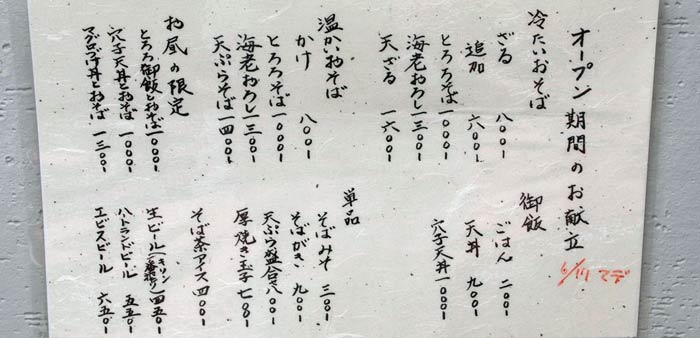 オープン期間のお献立
6/17マデ
冷たいおそば
ざる 八〇〇ー
追加 六〇〇ー
とろろそば 一〇〇〇ー
海老おろし 一三〇〇ー
天ざる 一六〇〇ー
温かいおそば
かけ 八〇〇ー
とろろそば 一〇〇〇ー
海老おろし 一三〇〇ー
天ぷらそば 一四〇〇ー
お昼の限定
とろろ御飯とおそば 一〇〇〇ー
穴子天丼とおそば 一〇〇〇ー
マグロづけ丼とおそば 一三〇〇ー
御飯
ごはん 二〇〇ー
天丼 九〇〇ー
穴子天丼 一〇〇〇ー
単品
そばみそ 三〇〇ー
そばがき 九〇〇ー
天ぷら盛合せ 八〇〇ー
厚焼き玉子 七〇〇ー
そば茶アイス 四〇〇ー
生ビール(キリン一番搾り) 四五〇ー
ハートランドビール 五五〇ー
エビスビール 六五〇ー